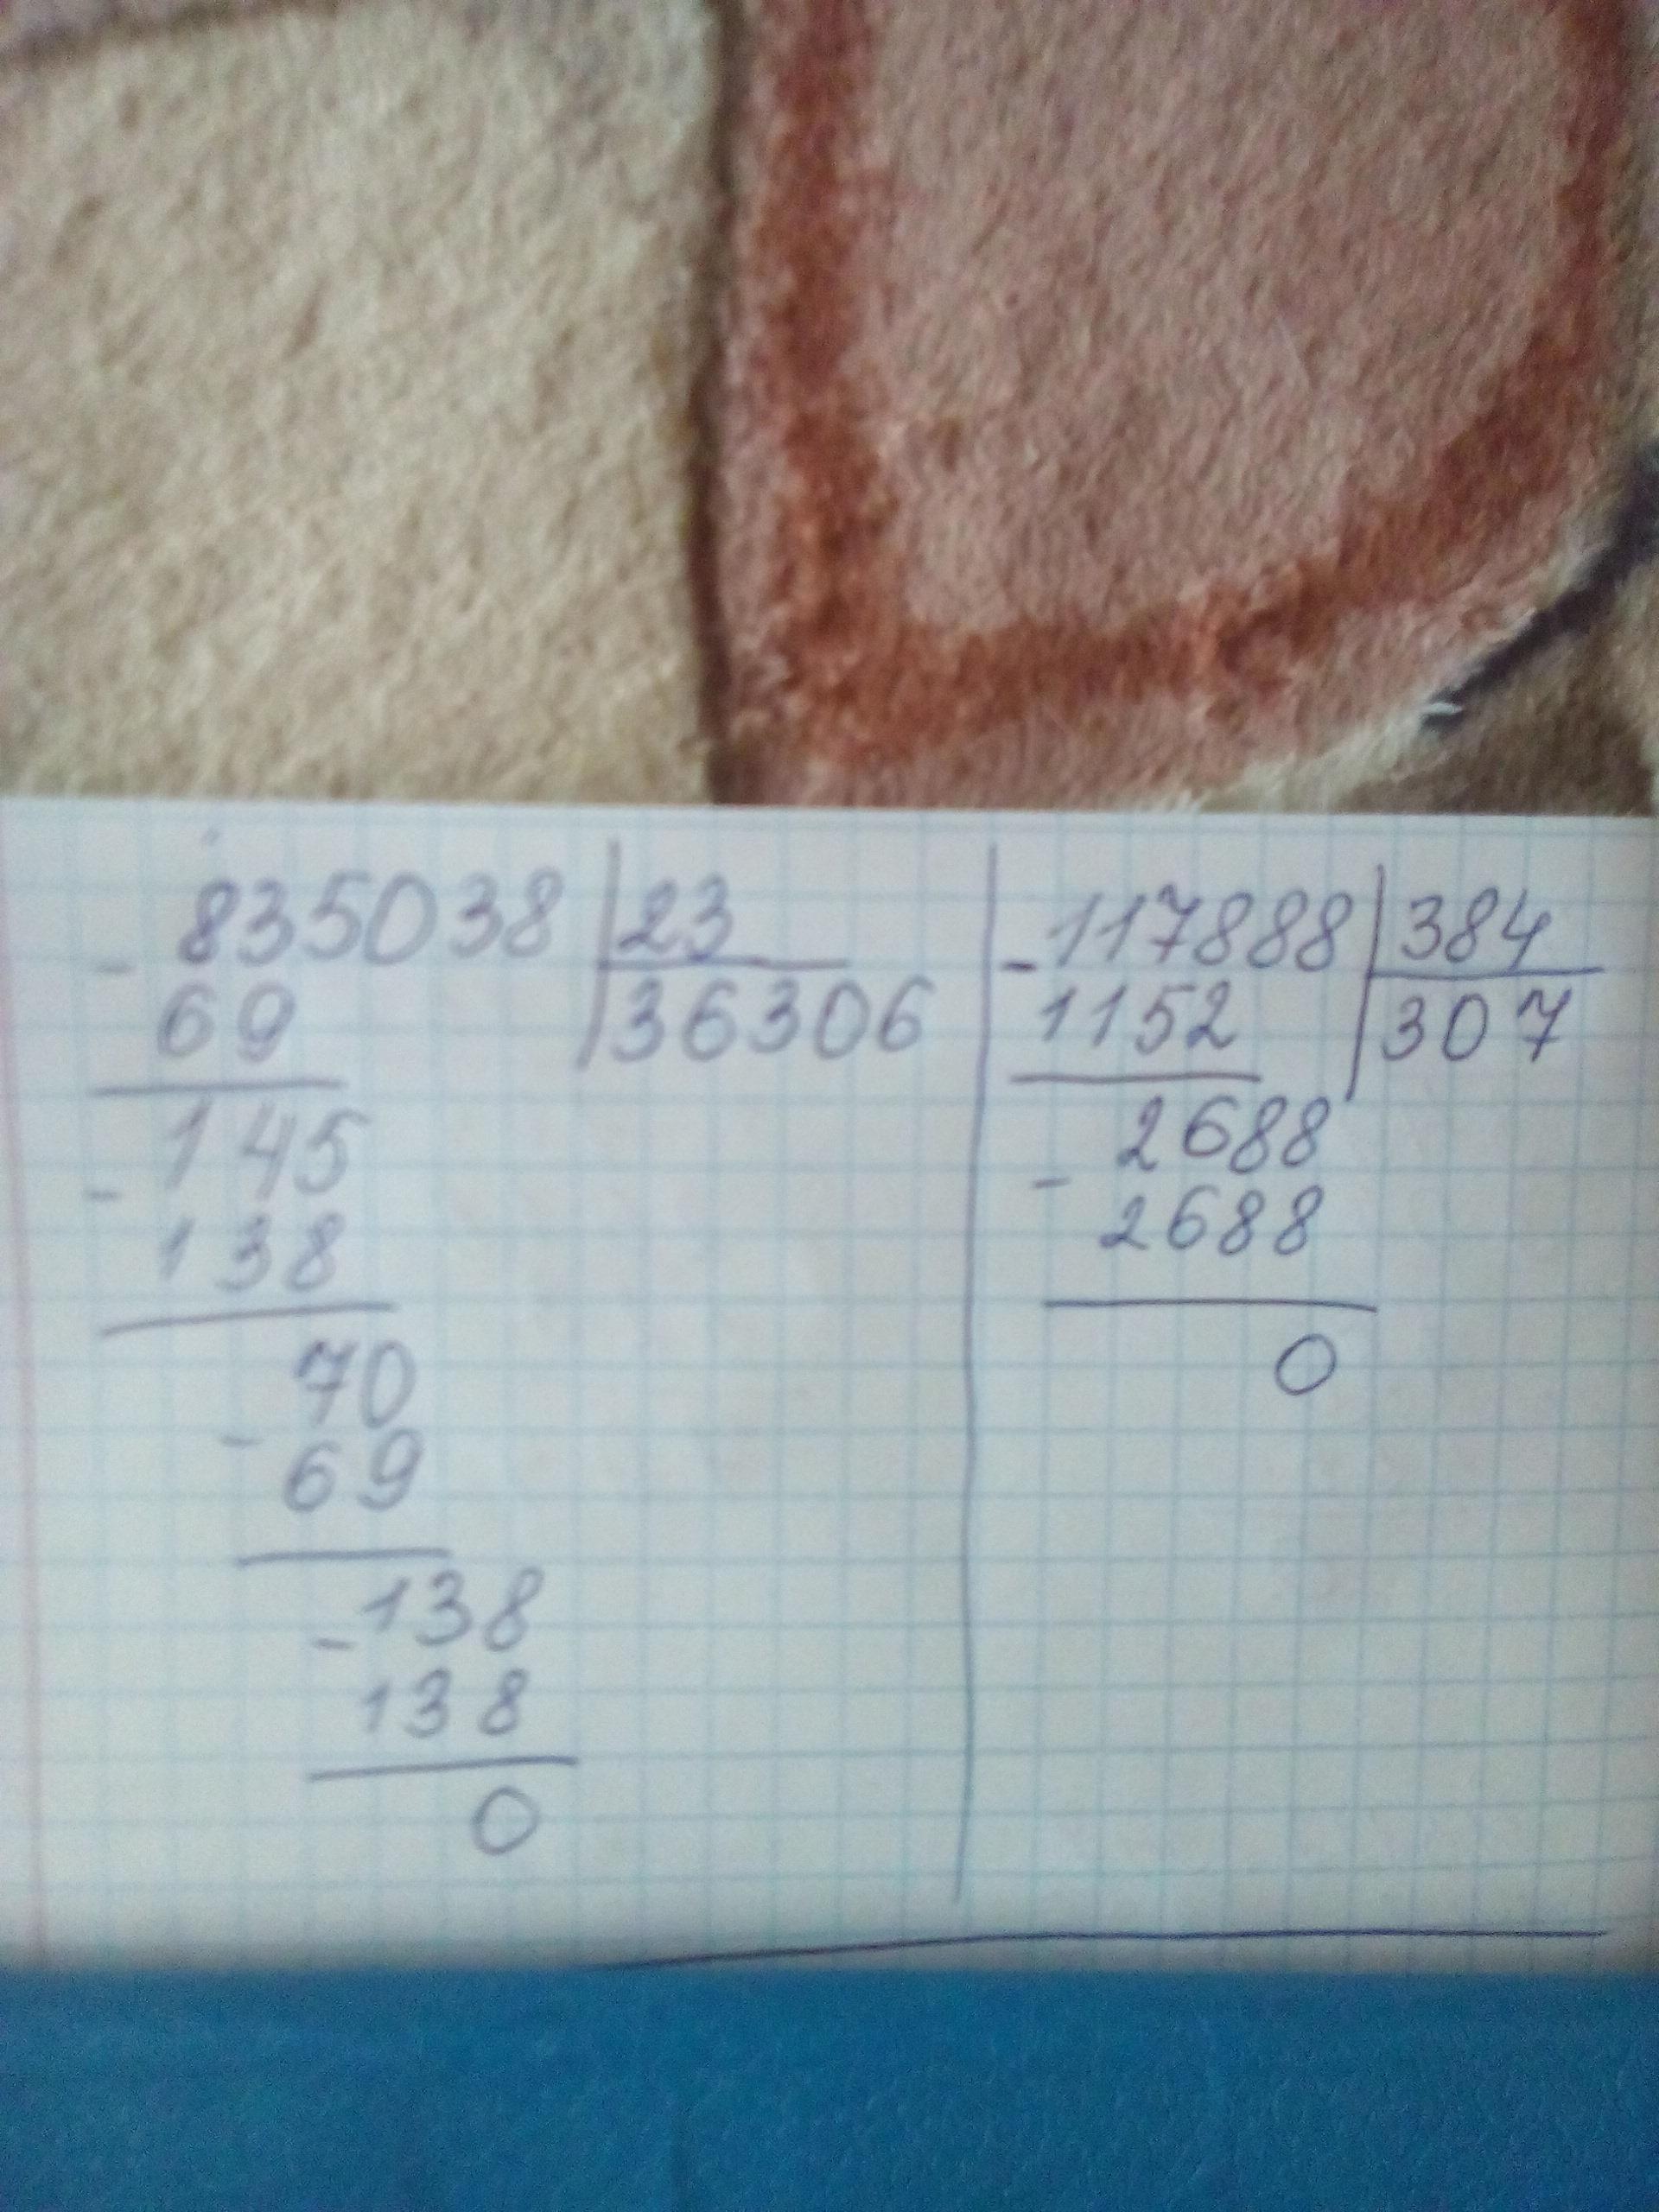 - 835038 | 23
69 | 36306
145
-
138
70
-
69
- 138
138
0
- 117888 | 384
1152 | 307
2688
-
2688
0